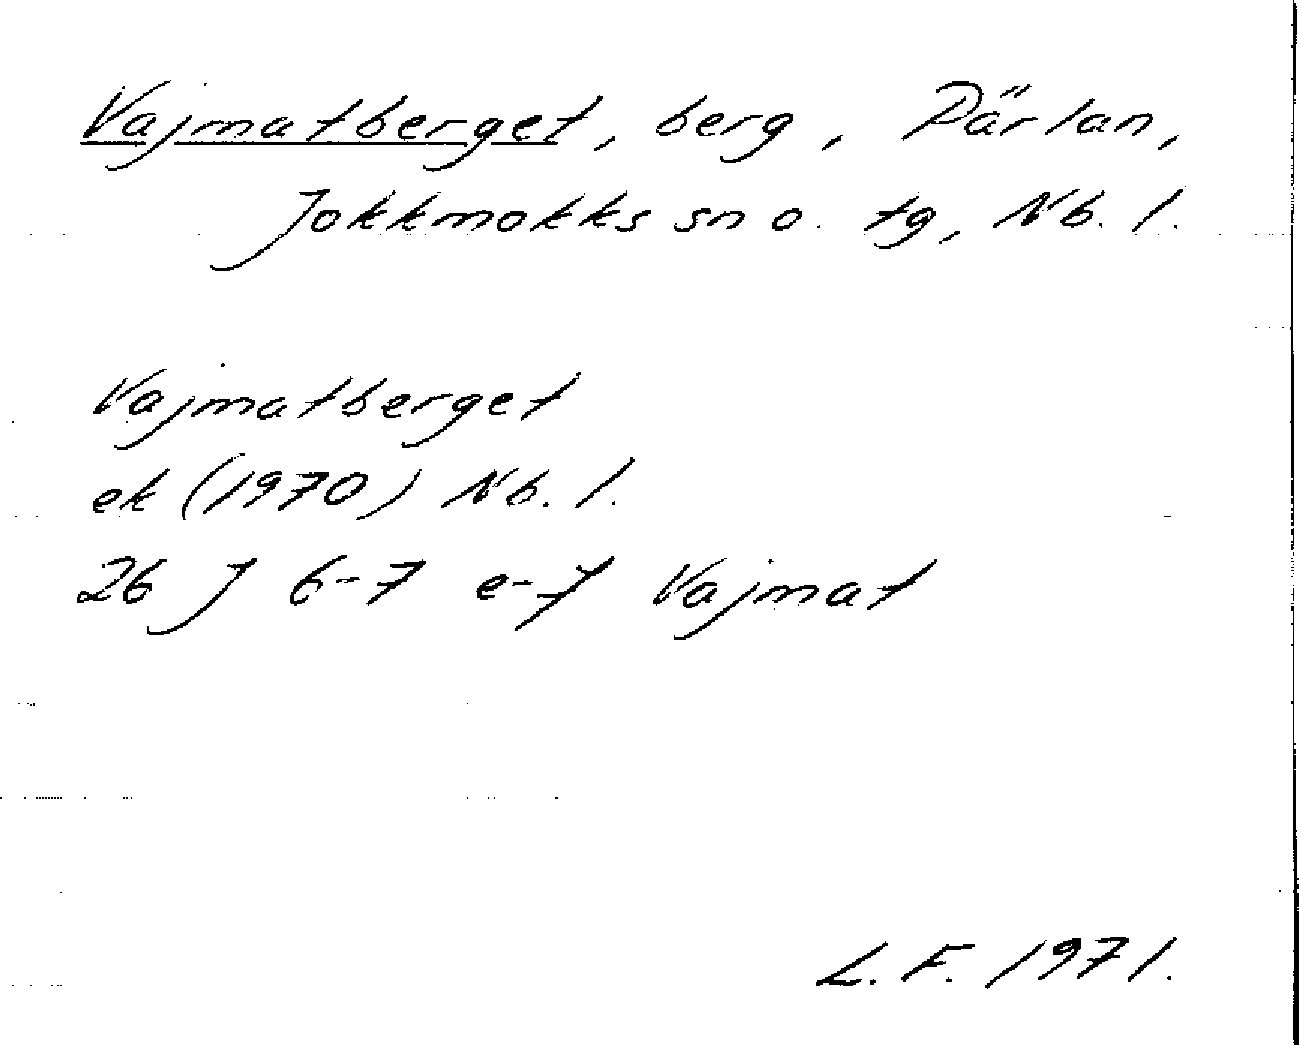 Vajmatberget, berg, Pärlan,
Jokkmokks sn o. tg, Nb. l.
Vajmatberget
ek (1970) Nb. l.
26 J 6-7 e-f Vajmat
L. F. 1971.